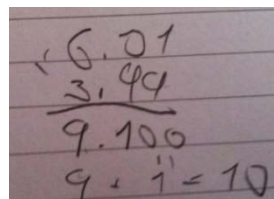 6.01
3.99
9.100
9 + 1 = 10